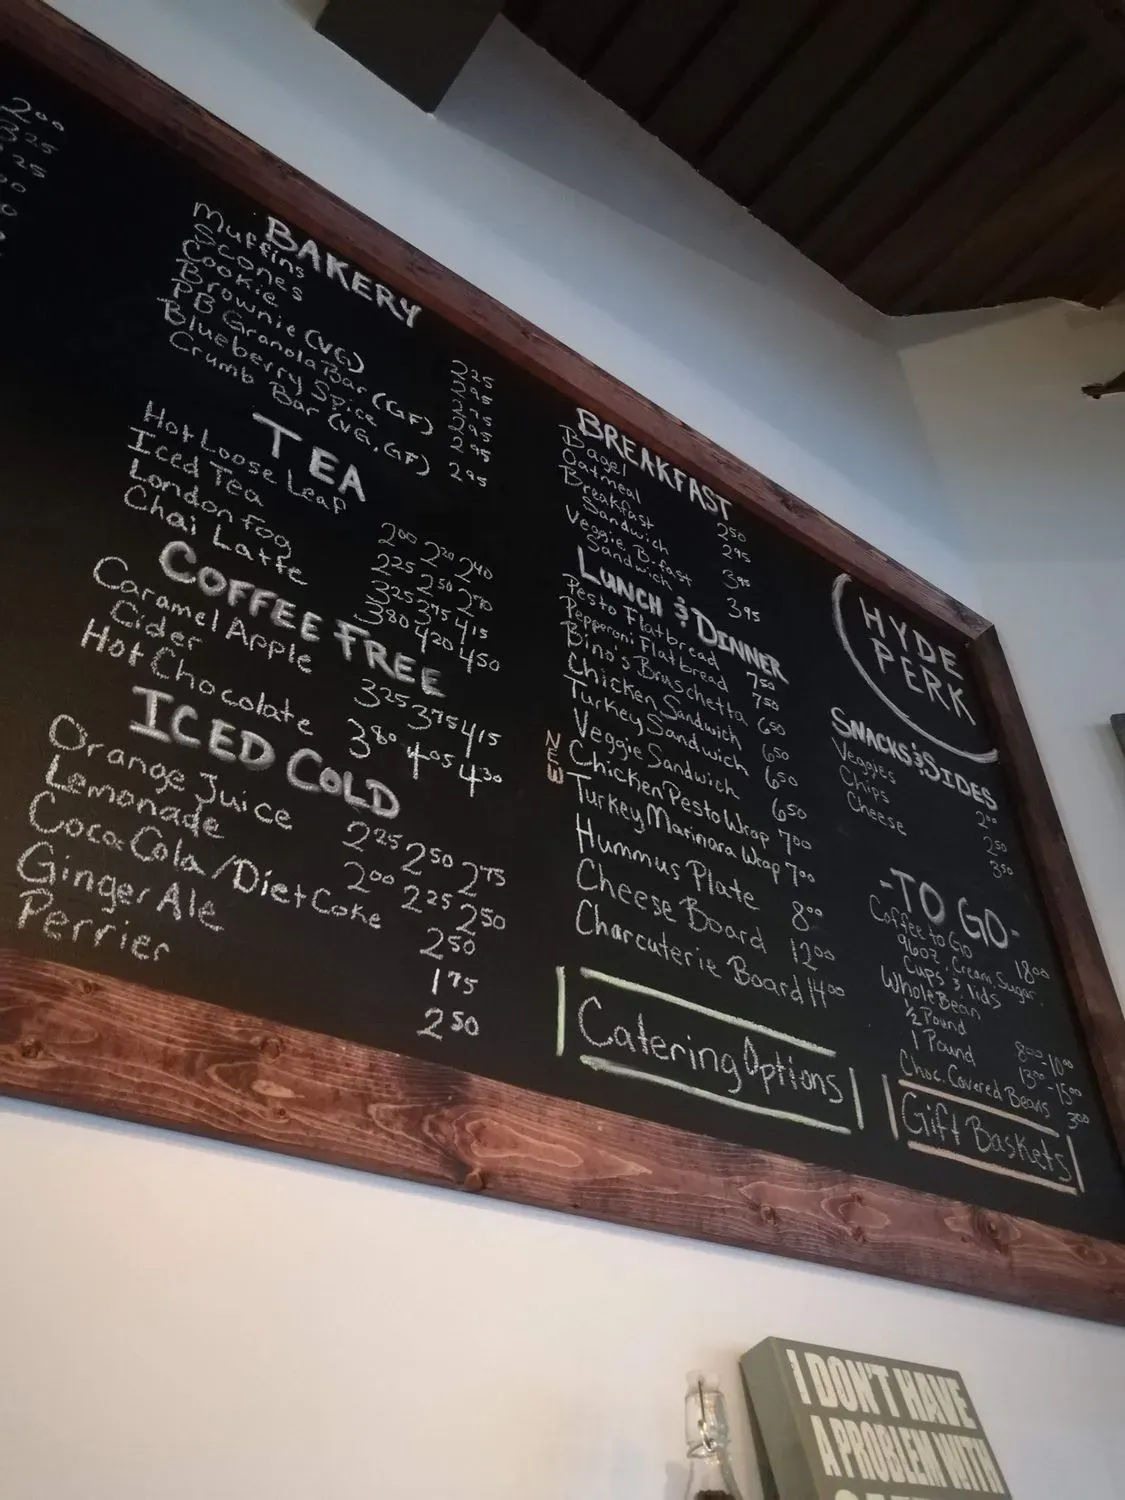 2⁰⁰
BAKERY
Muffins 2²⁵
Scones
Cookie
Brownie (VG) 2⁹⁵
PB Granola Bar (GF) 2⁹⁵
Blueberry Spice
Crumb Bar (VG, GF) 2⁹⁵
TEA
Hot Loose Leaf 2⁰⁰ 2²⁰ 2⁴⁰
Iced Tea 2²⁵ 2⁵⁰ 2⁷⁰
London Fog 3²⁵ 3⁷⁵ 4¹⁵
Chai Latte 3⁸⁰ 4²⁰ 4⁵⁰
COFFEE FREE
Caramel Apple
Cider 3²⁵ 3⁷⁵ 4¹⁵
Hot Chocolate 3⁸⁰ 4⁰⁵ 4³⁰
ICED COLD
Orange Juice 2²⁵ 2⁵⁰ 2⁷⁵
Lemonade 2⁰⁰ 2²⁵ 2⁵⁰
Coca Cola/Diet Coke 2⁵⁰
Ginger Ale 1⁷⁵
Perrier 2⁵⁰
BREAKFAST
Bagel 2⁵⁰
Oatmeal 2⁹⁵
Breakfast
Sandwich 3⁹⁵
Veggie B.fast
Sandwich 3⁹⁵
LUNCH & DINNER
Pesto Flatbread 7⁵⁰
Pepperoni Flatbread 7⁵⁰
Bino's Bruschetta 6⁵⁰
Chicken Sandwich 6⁵⁰
Turkey Sandwich 6⁵⁰
Veggie Sandwich 6⁵⁰
NEW
Chicken Pesto Wrap 7⁰⁰
Turkey Marinara Wrap 7⁰⁰
Hummus Plate 8⁰⁰
Cheese Board 12⁰⁰
Charcuterie Board 14⁰⁰
Catering Options
HYDE
PERK
SNACKS & SIDES
Veggies 2⁰⁰
Chips 2⁵⁰
Cheese 3⁵⁰
-TO GO-
Coffee to Go 18⁰⁰
96oz, Cream, Sugar,
Cups & lids
Whole Bean
½ Pound 8⁰⁰-10⁰⁰
1 Pound 13⁰⁰-15⁰⁰
Choc. Covered Beans 3⁰⁰
Gift Baskets
I DON'T HAVE
A PROBLEM WITH